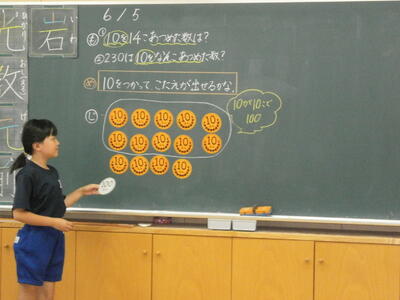 6/5
も ①10を14こあつめた数は?
②230は10をなんこあつめた数?
め 10をつかって こたえが出せるかな。
じ
10 10 10 10 10
10 10 10 10 10
10 10 10 10
10が10こで
100
100
岩
光
数